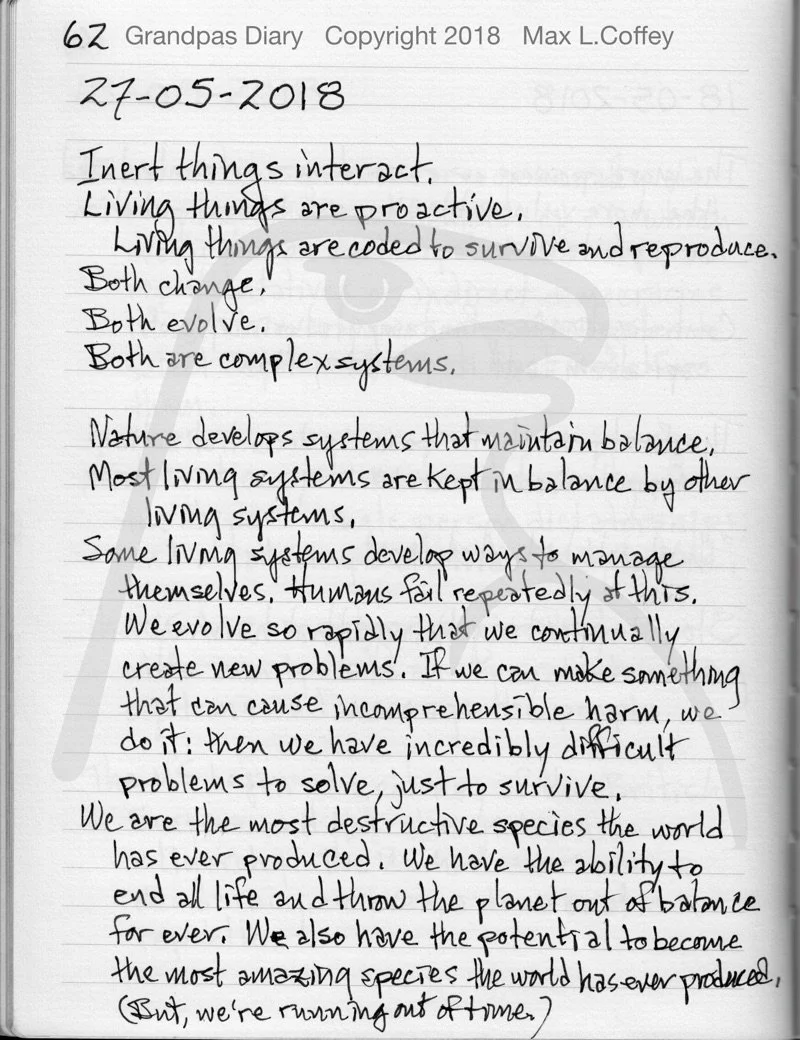 62 Grandpas Diary Copyright 2018 Max L.Coffey
27-05-2018
Inert things interact.
Living things are proactive.
Living things are coded to survive and reproduce.
Both change.
Both evolve.
Both are complex systems.
Nature develops systems that maintain balance.
Most living systems are kept in balance by other
living systems.
Some living systems develop ways to manage
themselves. Humans fail repeatedly at this.
We evolve so rapidly that we continually
create new problems. If we can make something
that can cause incomprehensible harm, we
do it: then we have incredibly difficult
problems to solve, just to survive.
We are the most destructive species the world
has ever produced. We have the ability to
end all life and throw the planet out of balance
for ever. We also have the potential to become
the most amazing species the world has ever produced.
(But, we're running out of time.)